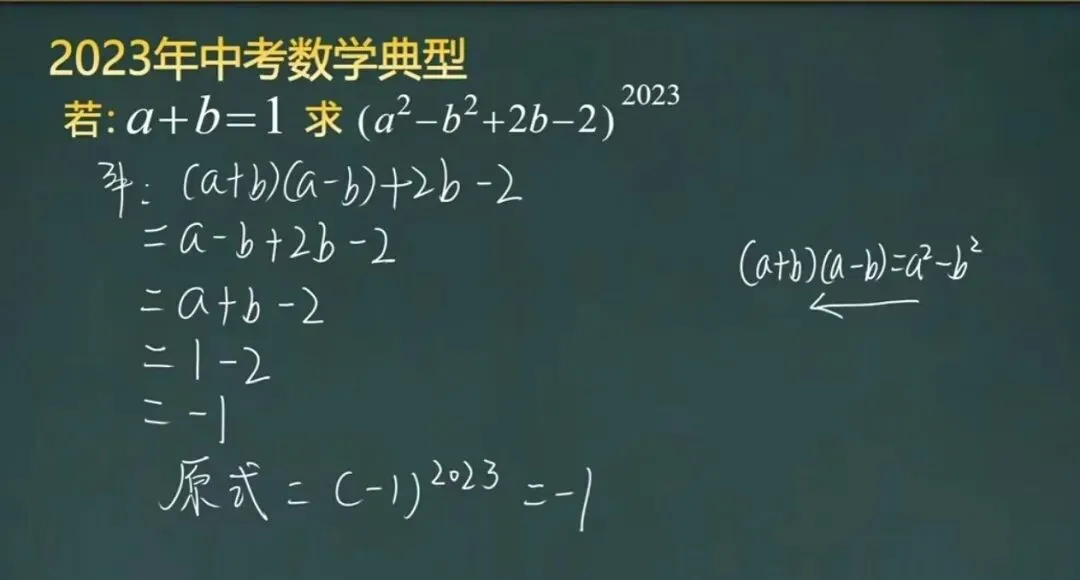 2023年中考数学典型
若: a+b=1 求 (a²-b²+2b-2)²⁰²³
(a+b)(a-b)+2b-2
=a-b+2b-2
=a+b-2
=1-2
=-1
原式=(-1)²⁰²³=-1
(a+b)(a-b)=a²-b²